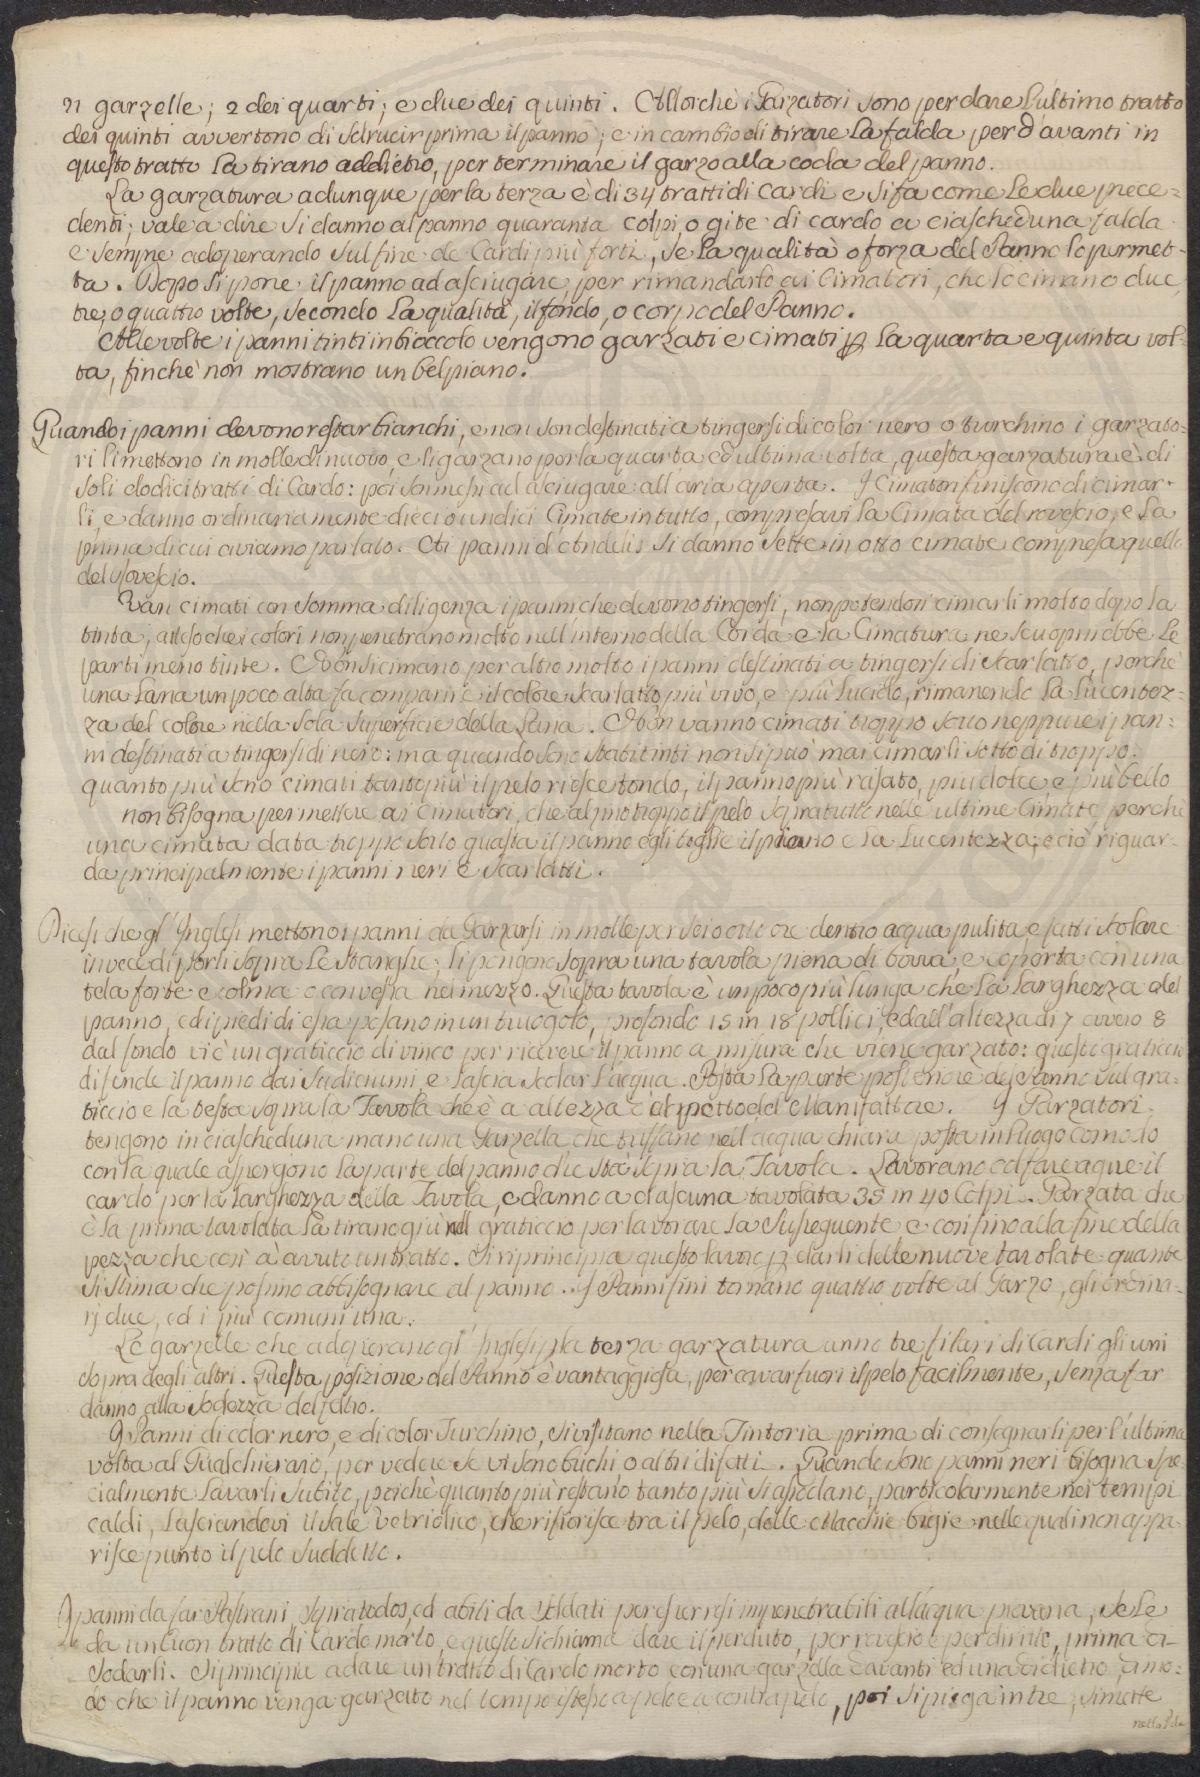 21 garzelle; 2 dei quarti; e due dei quinti. Allorchè i Garzatori sono per dare l'ultimo tratto
dei quinti avvertono di sdrucir prima il panno; e in cambio di tirare la falda per d'avanti in
questo tratto la tirano addietro, per terminare il garzo alla coda del panno.
La garzatura adunque per la terza è di 34 tratti di Cardi e si fa come le due prece=
denti; vale a dire si danno al panno quaranta colpi, o gite di cardo a ciascheduna falda
e sempre adoperando sul fine de Cardi più forti, se la qualità o forza del Panno lo permet-
ta. Dopo si pone il panno ad asciugare, per rimandarlo ai Cimatori, che lo cimano due,
tre, o quattro volte, secondo la qualità, il fondo, o corpo del Panno.
Alle volte i panni tinti in bioccolo vengono garzati e cimati p la quarta e quinta vol-
ta, finchè non mostrano un bel piano.
Quando i panni devono restar bianchi, e non son destinati a tingersi di color nero o turchino i garzato=
ri li mettono in molle di nuovo, e li garzano per la quarta ed ultima volta, questa garzatura è di
soli dodici tratti di Cardo: poi son messi ad asciugare all'aria aperta. I Cimatori finiscono di cimar-
li, e danno ordinariamente dieci o undici Cimate in tutto, compresavi la Cimata del rovescio, e la
prima di cui aviamo parlato. Ai panni d'Andelis si danno sette in otto cimate compresa quella
del rovescio.
Van cimati con somma diligenza i panni che devono tingersi, non potendosi cimarli molto dopo la
tinta; atteso che i colori non penetrano molto nell'interno della Corda e la Cimatura ne scuoprirebbe le
parti meno tinte. Non si cimano per altro molto i panni destinati a tingersi di Scarlatto, perchè
una Lana un poco alta fa comparire il colore Scarlatto più vivo, e più lucido, rimanendo la lucentez-
za del colore nella sola superficie della Lana. Non vanno cimati troppo sotto neppure i pan=
ni destinati a tingersi di nero: ma quando sono stati tinti non si può mai cimarli sotto di troppo.
quanto più sono cimati tanto più il pelo riesce tondo, il panno più rasato, più dolce, e più bello
non bisogna permettere ai cimatori, che alzino troppo il pelo sopratutto nelle ultime Cimate perchè
una cimata data troppo sotto guasta il panno egli toglie il piano e la lucentezza; e ciò riguar-
da principalmente i panni neri e Scarlatti.
Dicesi che gl'Inglesi mettono i panni da Garzarsi in molle per sei o otto ore dentro acqua pulita, e fatti scolare
in vece di porli sopra le Stanghe, li pongono sopra una tavola piena di borra, e coperta con una
tela forte e colma o convessa nel mezzo. Questa tavola è un poco più lunga che la larghezza del
panno, ed i piedi di essa posano in un truogolo, profondo 15 in 18 pollici, e dall'altezza di 7 ovvero 8
dal fondo vi è un graticcio di vinco per ricevere il panno a misura che viene garzato: questo graticcio
difende il panno dai sudiciumi, e lascia scolar l'acqua. Posta la parte posteriore del Panno sul gra=
ticcio e la testa sopra la Tavola che è a altezza del petto del Manifattore. I Garzatori
tengono in ciascheduna mano una Garzella che tuffano nell'acqua chiara posta in luogo comodo
con la quale aspergono la parte del panno che sta sopra la Tavola. Lavorano col fare agire il
cardo per la larghezza della Tavola, e danno a ciascuna tavolata 35 in 40 Colpi. Garzata che
è la prima tavolata la tirano giù nel graticcio per lavorare la susseguente e così fino alla fine della
pezza che così à avuto un tratto. Si riprincipia questo lavoro p darli delle nuove tavolate quante
si stima che possino abbisognare al panno. I Panni fini tornano quattro volte al Garzo, gli ordina-
rj due, ed i più comuni una.
Le garzelle che adoperano gl'Inglesi p la terza garzatura anno tre filari di Cardi gli uni
sopra degli altri. Questa posizione del Panno è vantaggiosa, per cavar fuori il pelo facilmente, senza far
danno alla sodezza del feltro.
I Panni di color nero, e di color Turchino, si visitano nella Tintoria prima di consegnarli per l'ultima
volta al Gualchieraio, per vedere se vi sono buchi, o altri difetti. Quando sono panni neri bisogna spe
cialmente lavarli subito, poichè quanto più restano tanto più si assodano, particolarmente nei tempi
caldi, lasciandovi il sale vetriolico, che rifiorisce tra il pelo, delle Macchie bigie nelle quali non appa
risce punto il pelo suddetto.
I panni da far Pastrani, Sopratodos, ed abiti da Soldati per essere resi impenetrabili all'acqua piovana, se le
da un buon tratto di Cardo morto, e questo si chiama dare il perduto, per rovescio e per diritto, prima di
Sodarli. Si principia a dare un tratto di Cardo morto con una garzella davanti ed una di dietro, a mo=
do che il panno venga garzato nel tempo istesso a pelo e a contrapelo, poi si piega in tre, si mette
nella Pila